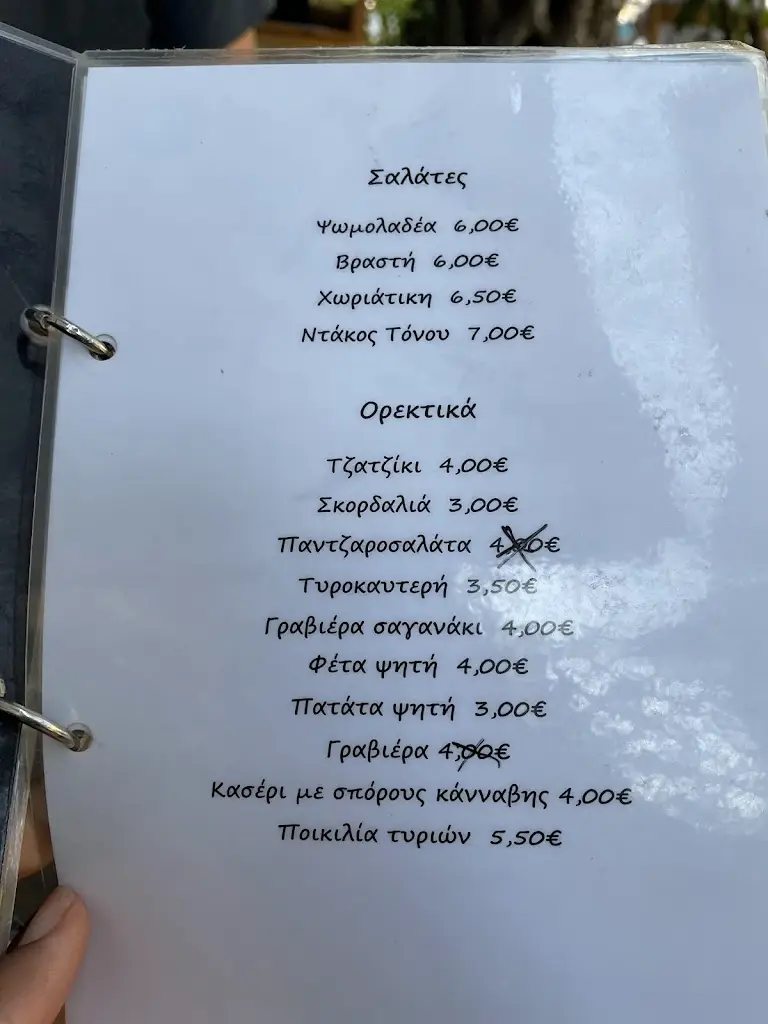 Σαλάτες
Ψωμολαδέα 6,00€
Βραστή 6,00€
Χωριάτικη 6,50€
Ντάκος Τόνου 7,00€
Ορεκτικά
Τζατζίκι 4,00€
Σκορδαλιά 3,00€
Παντζαροσαλάτα 4,00€
Τυροκαυτερή 3,50€
Γραβιέρα σαγανάκι 4,00€
Φέτα ψητή 4,00€
Πατάτα ψητή 3,00€
Γραβιέρα 4,00€
Κασέρι με σπόρους κάνναβης 4,00€
Ποικιλία τυριών 5,50€